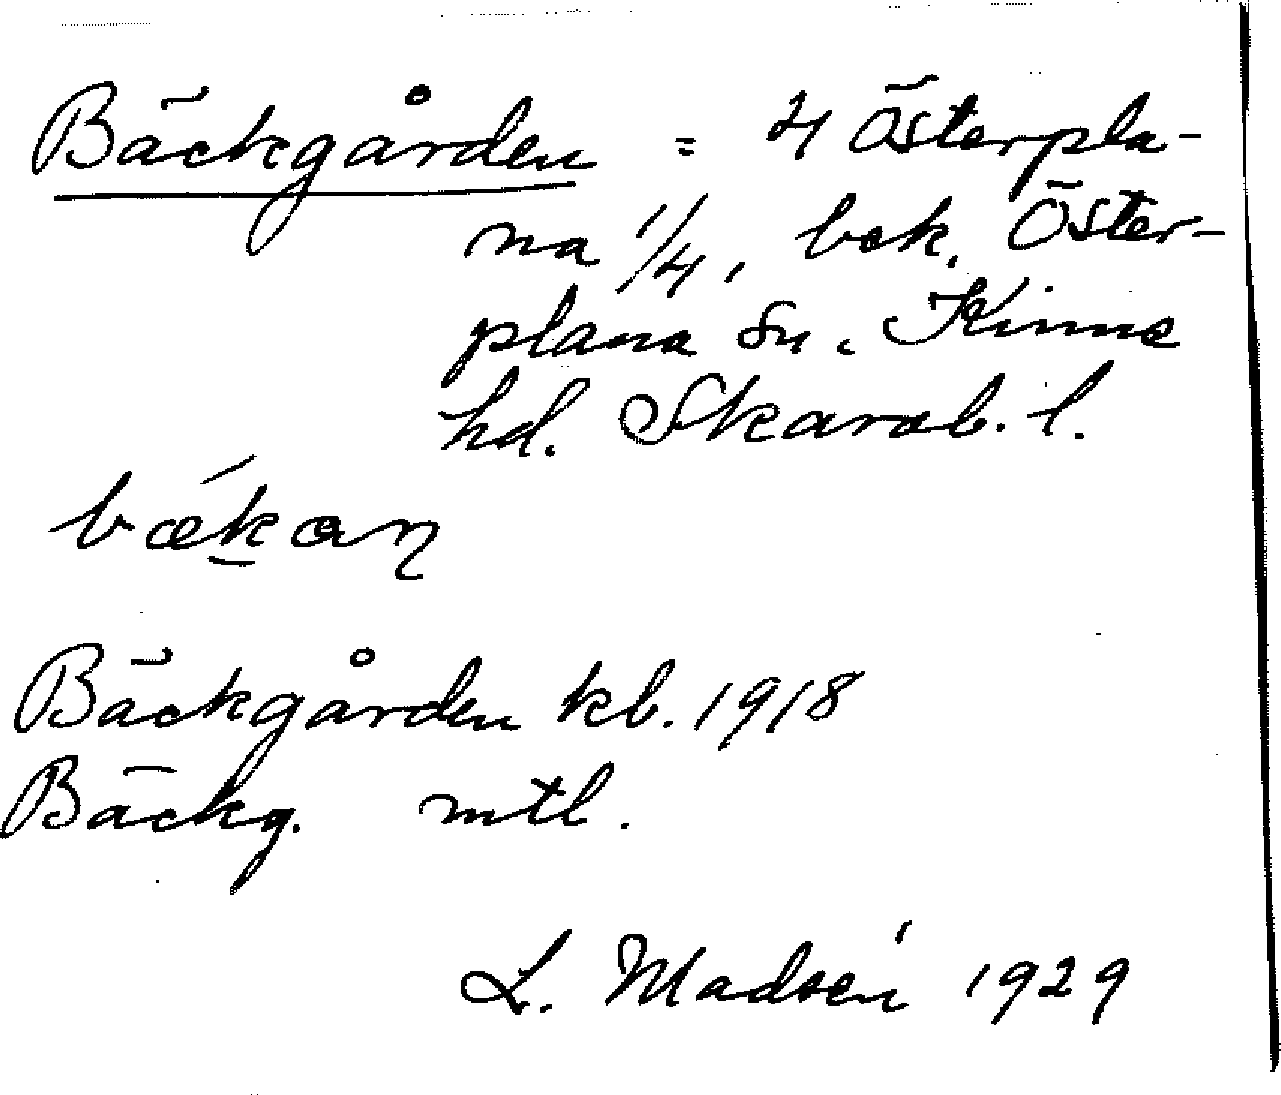 Bäckgården = 4 Österpla-
na 1/4, bek. Öster-
plana sn. Kinne
hd. Skarab. l.
bǽkan
Bäckgården kb. 1918
Bäckg. mtl.
L. Madsén 1929